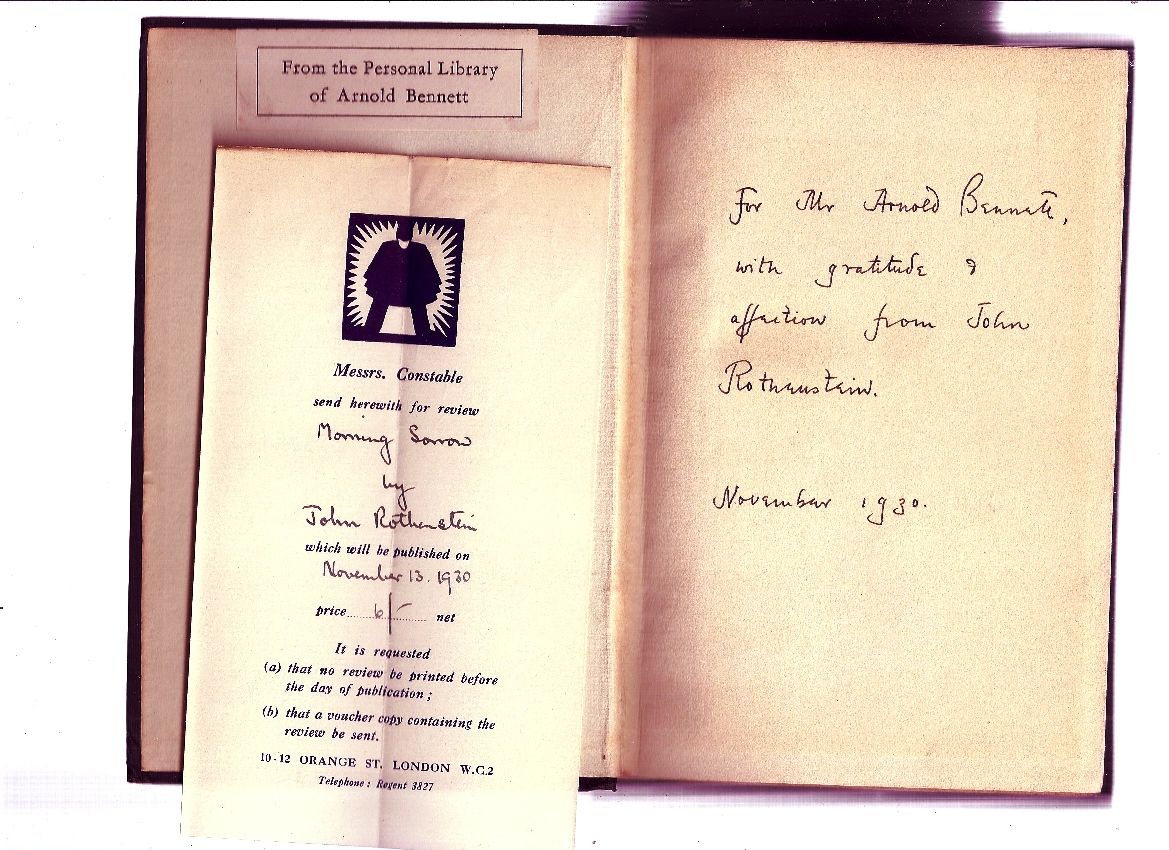 From the Personal Library
of Arnold Bennett
Messrs. Constable
send herewith for review
Morning Sorrow
by
John Rothenstein
which will be published on
November 13. 1930
price......6/-......... net
It is requested
(a) that no review be printed before
the day of publication;
(b) that a voucher copy containing the
review be sent.
10-12 ORANGE ST. LONDON W.C.2
Telephone: Regent 3827
For Mr Arnold Bennett,
with gratitude &
affection from John
Rothenstein.
November 1930.